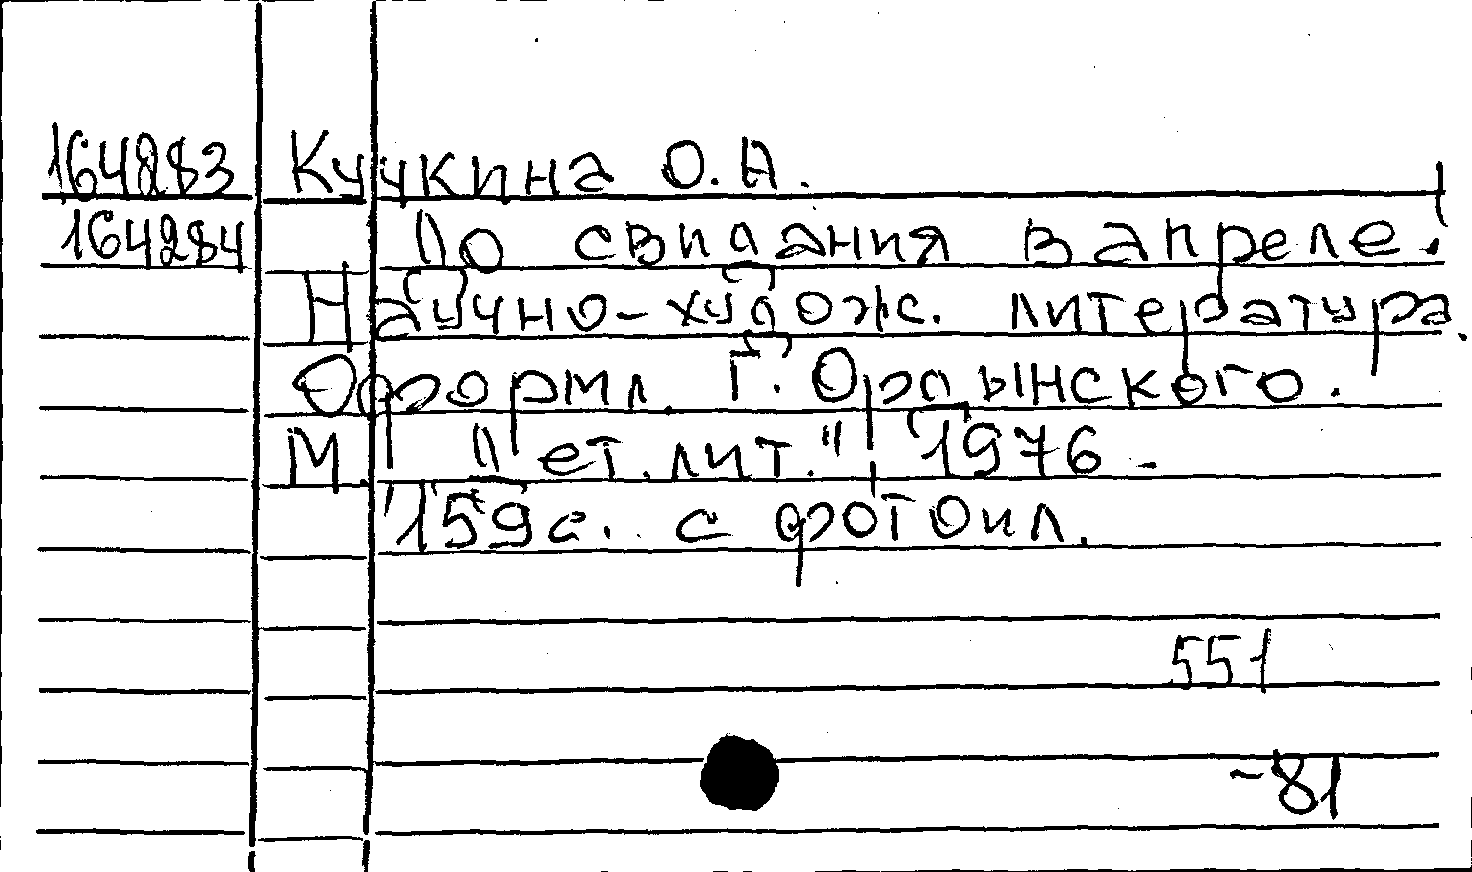 164283 Кучкина О. А.
164284 До свидания в апреле!
Научно-худож. литература.
Оформл. Г. Ордынского.
М. "Дет. лит.", 1976 -
159 с. с фотоил.
551
-81